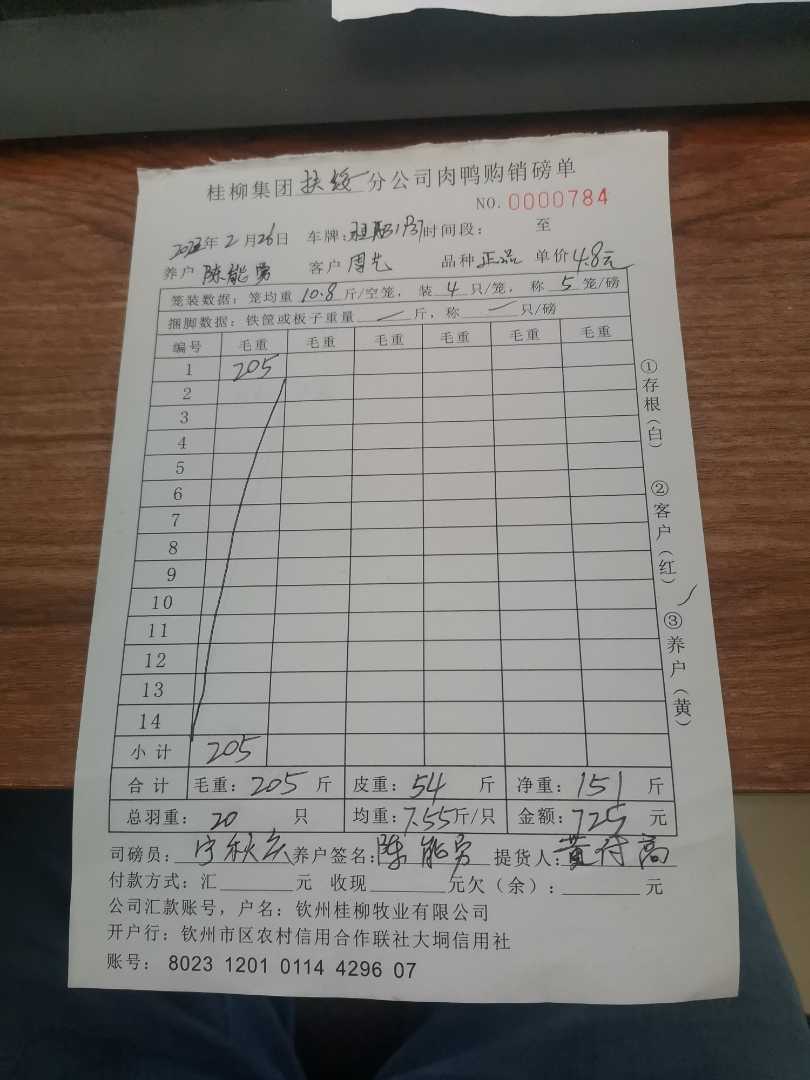 桂柳集团扶绥分公司肉鸭购销磅单
NO.0000784
2022年2月26日 车牌: 时间段: 至
养户 陈能勇 客户 周艺 品种 正品 单价 4.8元
笼装数据: 笼均重 10.8 斤/空笼, 装 4 只/笼, 称 5 笼/磅
捆脚数据: 铁筐或板子重量 — 斤, 称 — 只/磅
编号 毛重 毛重 毛重 毛重 毛重 毛重
1 205
2
3
4
5
6
7
8
9
10
11
12
13
14
小计 205
合计 毛重: 205 斤 皮重: 54 斤 净重: 151 斤
总羽重: 20 只 均重: 7.55斤/只 金额: 725 元
司磅员: 宁秋 养户签名: 陈能勇 提货人: 黄付高
付款方式: 汇 元 收现 元欠(余): 元
公司汇款账号, 户名: 钦州桂柳牧业有限公司
开户行: 钦州市区农村信用合作联社大垌信用社
账号: 8023 1201 0114 4296 07
①存根(白)
②客户(红)
③养户(黄)